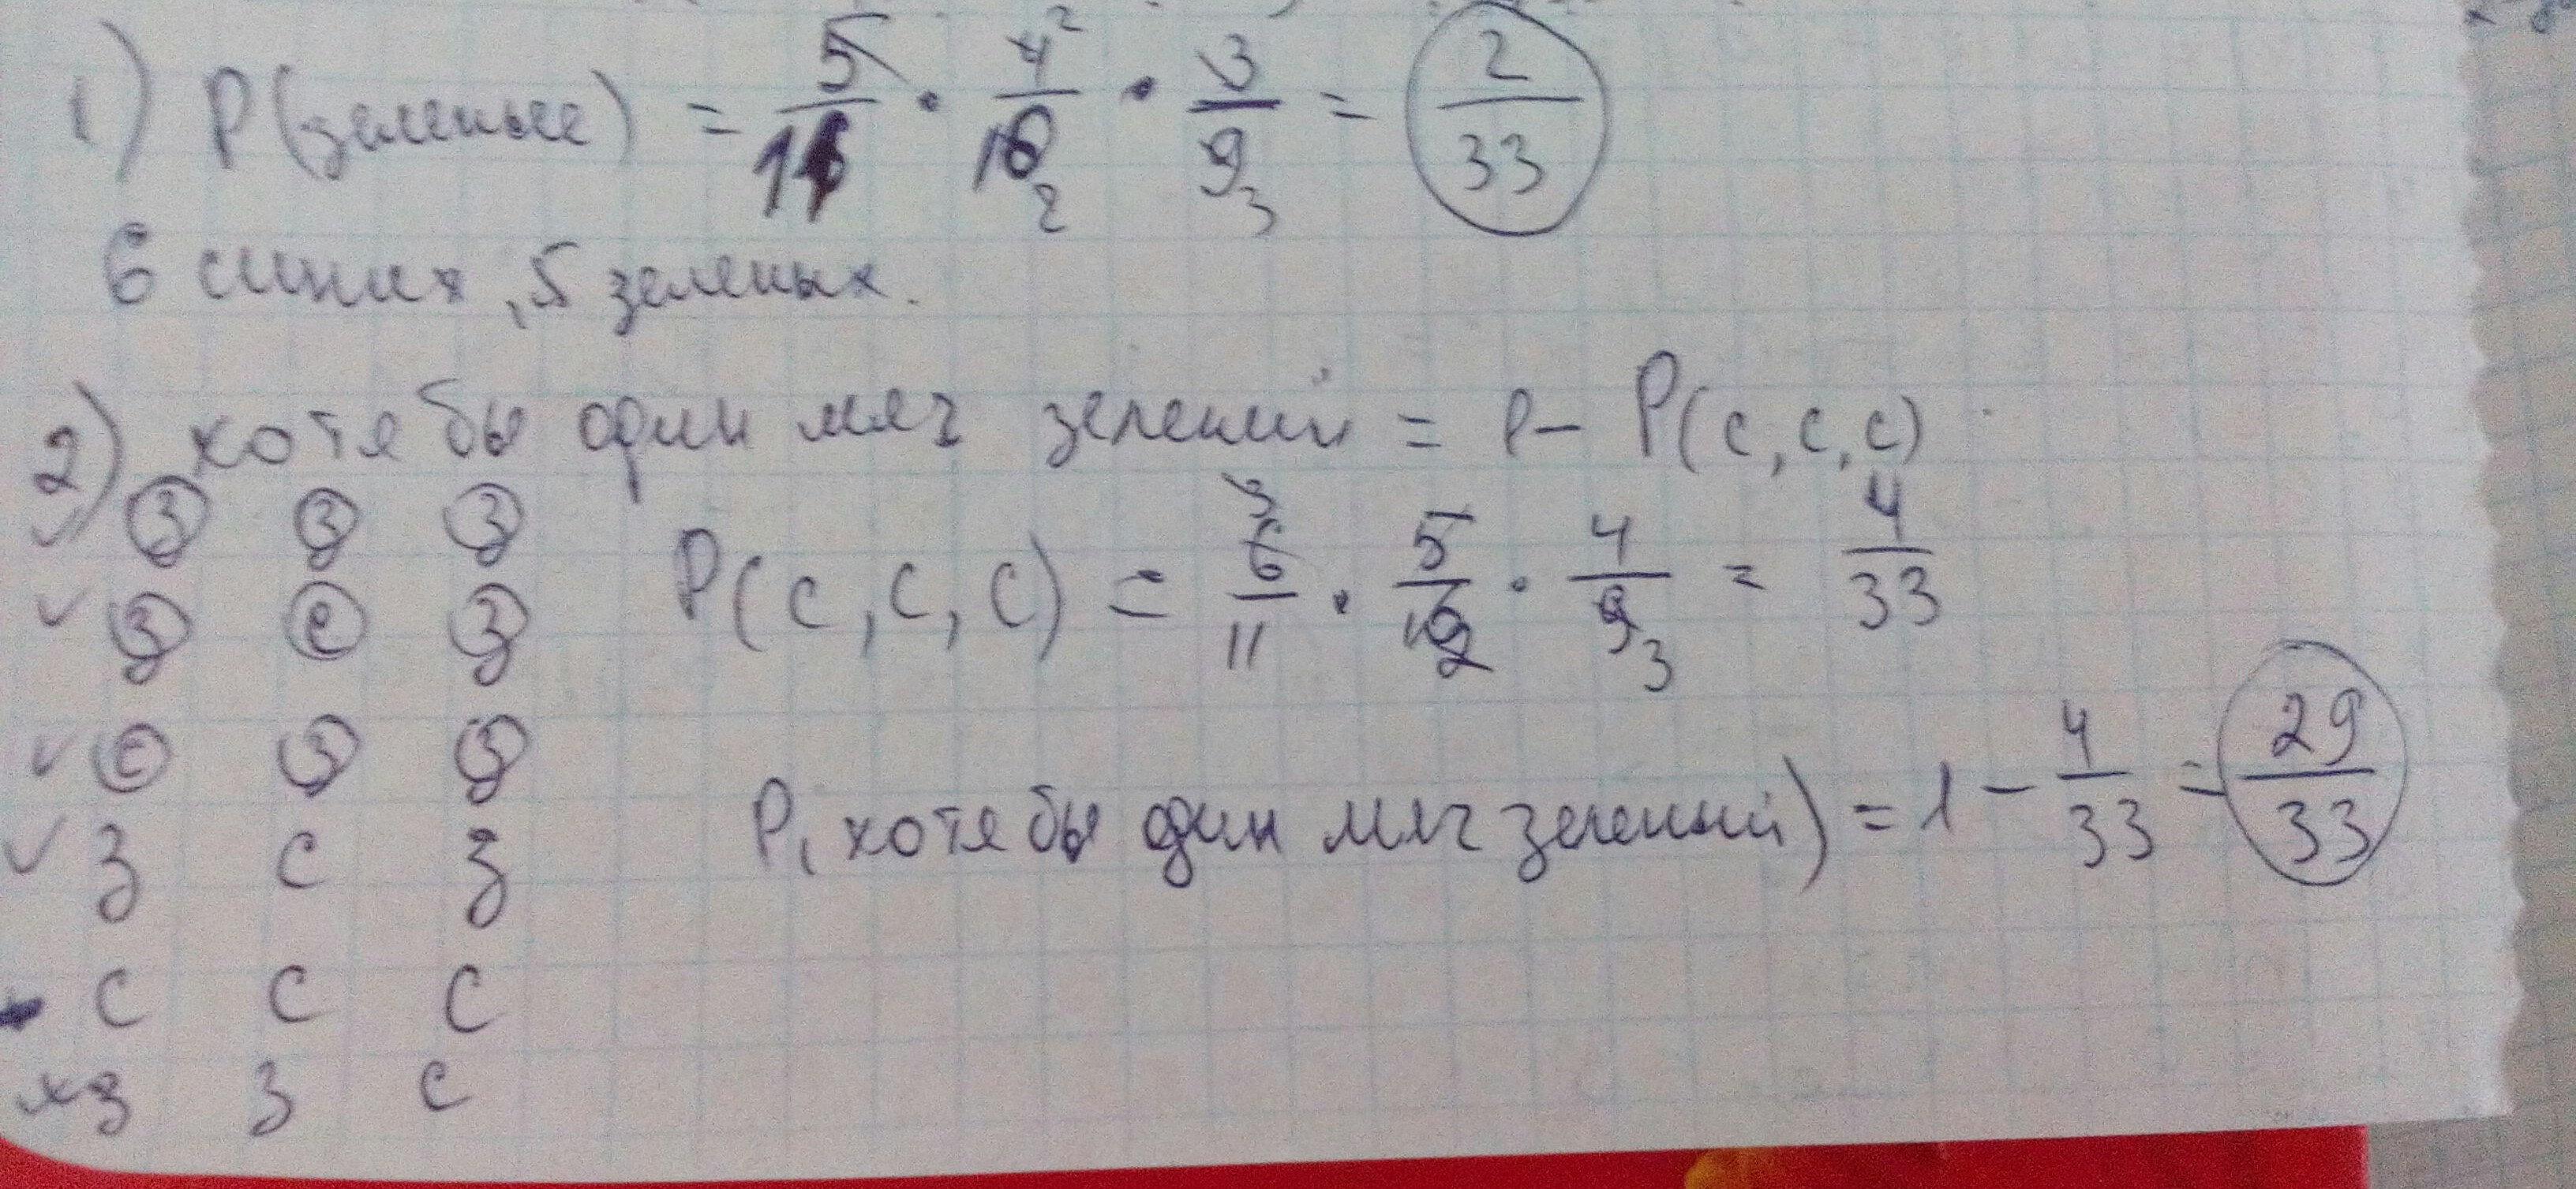 1) P(зеленые) = 5/11 · 4²/10₂ · 3/9₃ = 2/33
6 синих, 5 зеленых.
2) хотя бы один мяч зеленый = 1 - P(c, c, c)
✓ з з з
✓ з с з
✓ с з з
✓ з с з
- с с с
x з з с
P(c, c, c) = 6³/11 · 5/10₂ · 4/9₃ = 4/33
P(хотя бы один мяч зеленый) = 1 - 4/33 = 29/33